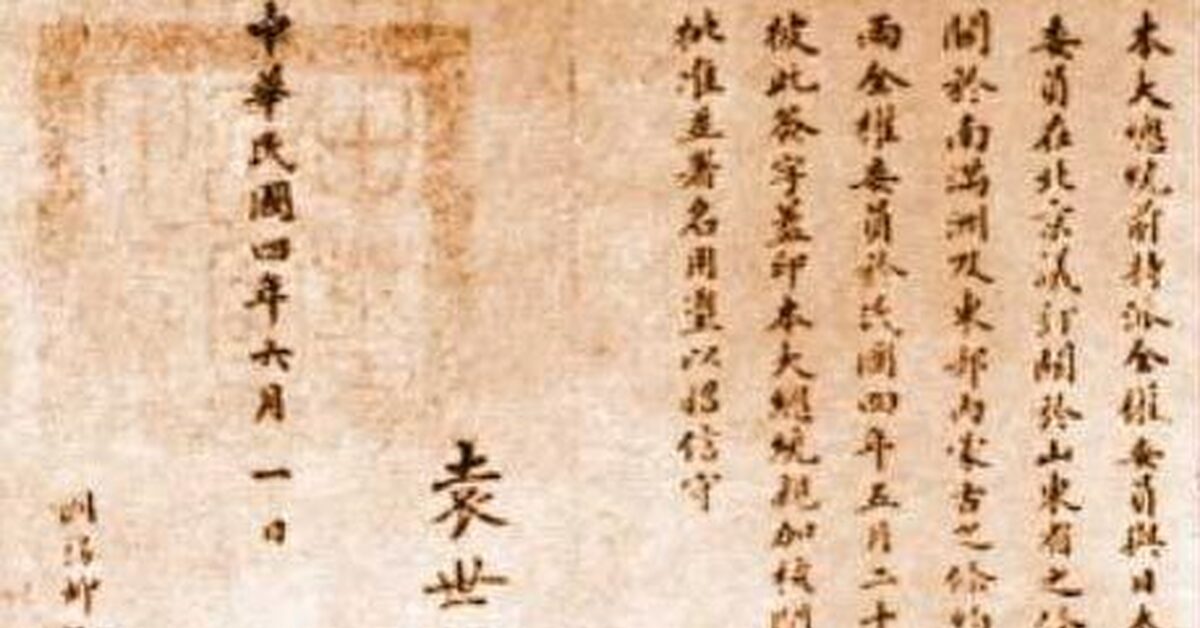 本大總統前特派全權委員與日本
委員在北京議訂關於山東省之條
關於南滿洲及東部內蒙古之條約
兩全權委員於民國四年五月二十
彼此簽字蓋印本大總統親加核閱
批准並署名用璽以昭信守
袁世
中華民國四年六月一日